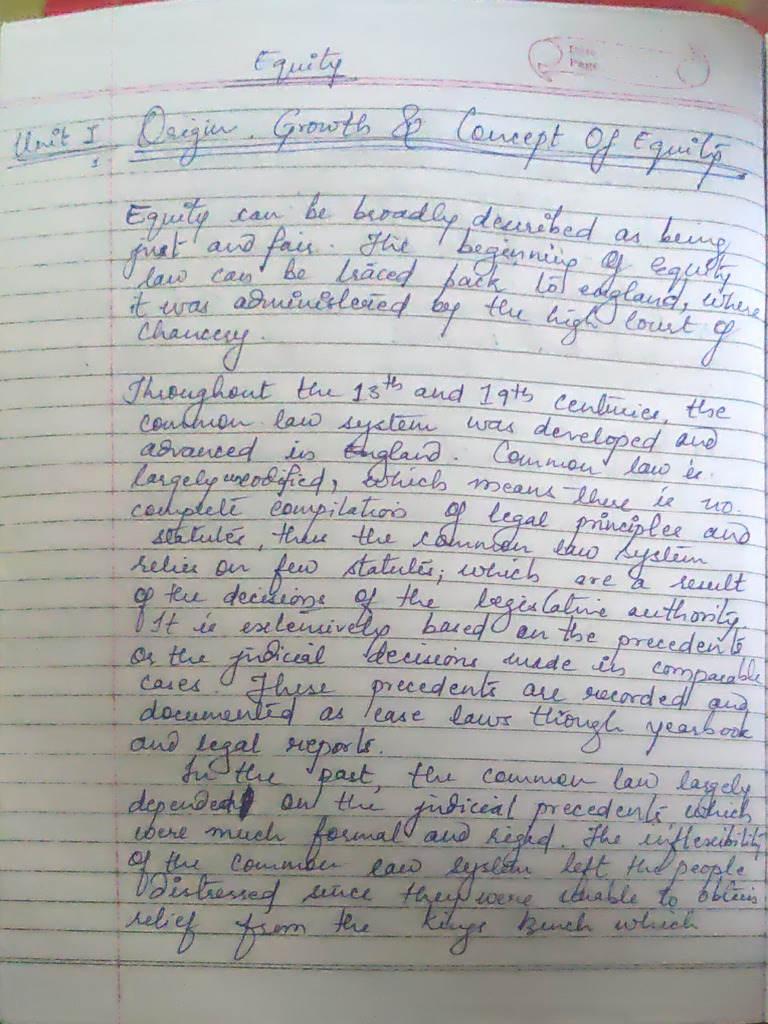 Equity
Date
Page
Unit I Origin, Growth & Concept Of Equity
Equity can be broadly described as being
just and fair. The beginning of Equity
law can be traced back to england, where
it was administered by the high court of
Chancery.
Throughout the 13th and 19th centuries, the
common law system was developed and
advanced in England. Common law is
largely uncodified, which means there is no
complete compilation of legal principles and
statutes, thus the common law system
relies on few statutes; which are a result
of the decisions of the legislative authority.
It is extensively based on the precedents
or the judicial decisions made in comparable
cases. These precedents are recorded and
documented as case laws through yearbook
and legal reports.
In the past, the common law largely
depended on the judicial precedents, which
were much formal and rigid. The inflexibility
of the common law system left the people
distressed since they were unable to obtain
relief from the Kings Bench which